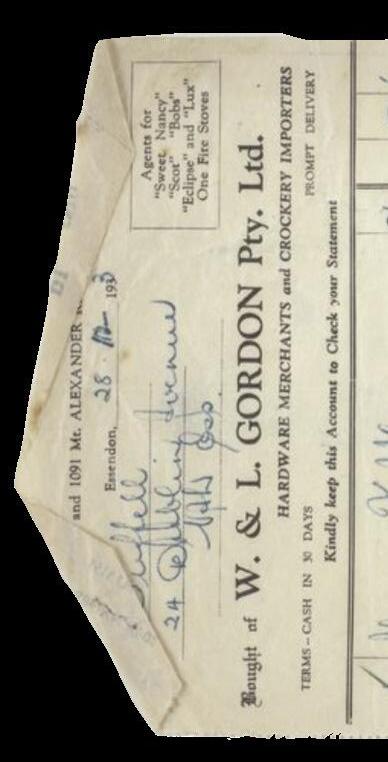 and 1091 Mt. ALEXANDER
Agents for
"Sweet Nancy"
"Scot" "Bobs"
"Eclipse" and "Lux"
One Fire Stoves
Essendon, 28 · 12 193
24
Bought of W. & L. GORDON Pty. Ltd.
HARDWARE MERCHANTS and CROCKERY IMPORTERS
TERMS – CASH IN 30 DAYS PROMPT DELIVERY
Kindly keep this Account to Check your Statement